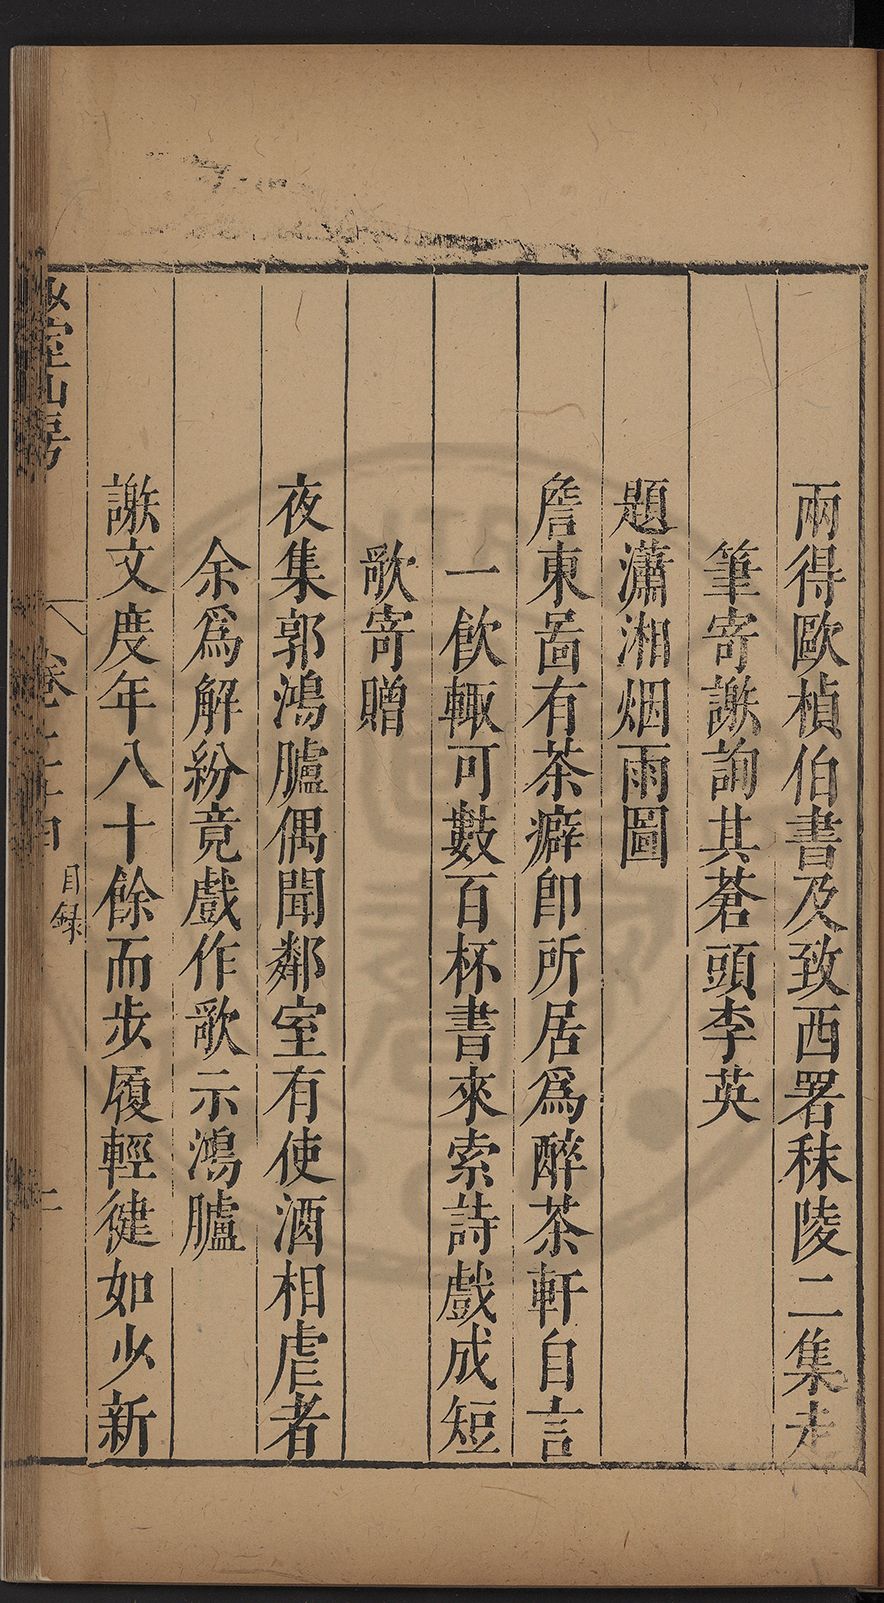 兩得歐楨伯書及致西署秣陵二集走
筆寄謝詢其蒼頭李英
題瀟湘烟雨圖
詹東啚有茶癖卽所居爲醉茶軒自言
一飮輙可數百杯書來索詩戲成短
歌寄贈
夜集郭鴻臚偶聞鄰室有使酒相虐者
余爲解紛竟戲作歌示鴻臚
謝文度年八十餘而步履輕健如少新
山房
卷二十四
目録
二